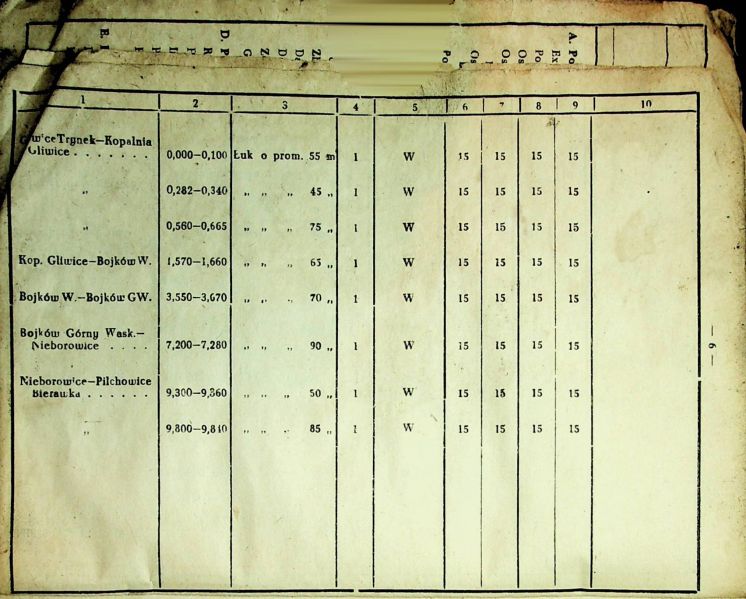 1 2 3 4 5 6 7 8 9 10
Trynek—Kopalnia
Gliwice . . . . . . . 0,000—0,100 Łuk o prom. 55 m 1 W 15 15 15 15
„ 0,282—0,340 „ „ „ 45 „ 1 W 15 15 15 15
„ 0,560—0,665 „ „ „ 75 „ 1 W 15 15 15 15
Kop. Gliwice—Bojków W. 1,570—1,660 „ „ „ 65 „ 1 W 15 15 15 15
Bojków W.—Bojków GW. 3,550—3,670 „ „ „ 70 „ 1 W 15 15 15 15
Bojków Górny Wask.—
Nieborowice . . . . 7,200—7,280 „ „ „ 90 „ 1 W 15 15 15 15
Nieborowice—Pilchowice
Bierawka . . . . . . 9,300—9,360 „ „ „ 50 „ 1 W 15 15 15 15
„ 9,800—9,840 „ „ „ 85 „ 1 W 15 15 15 15
— 6 —
A. Po
Ex
Po
Os
Os
Os
Po
D. P